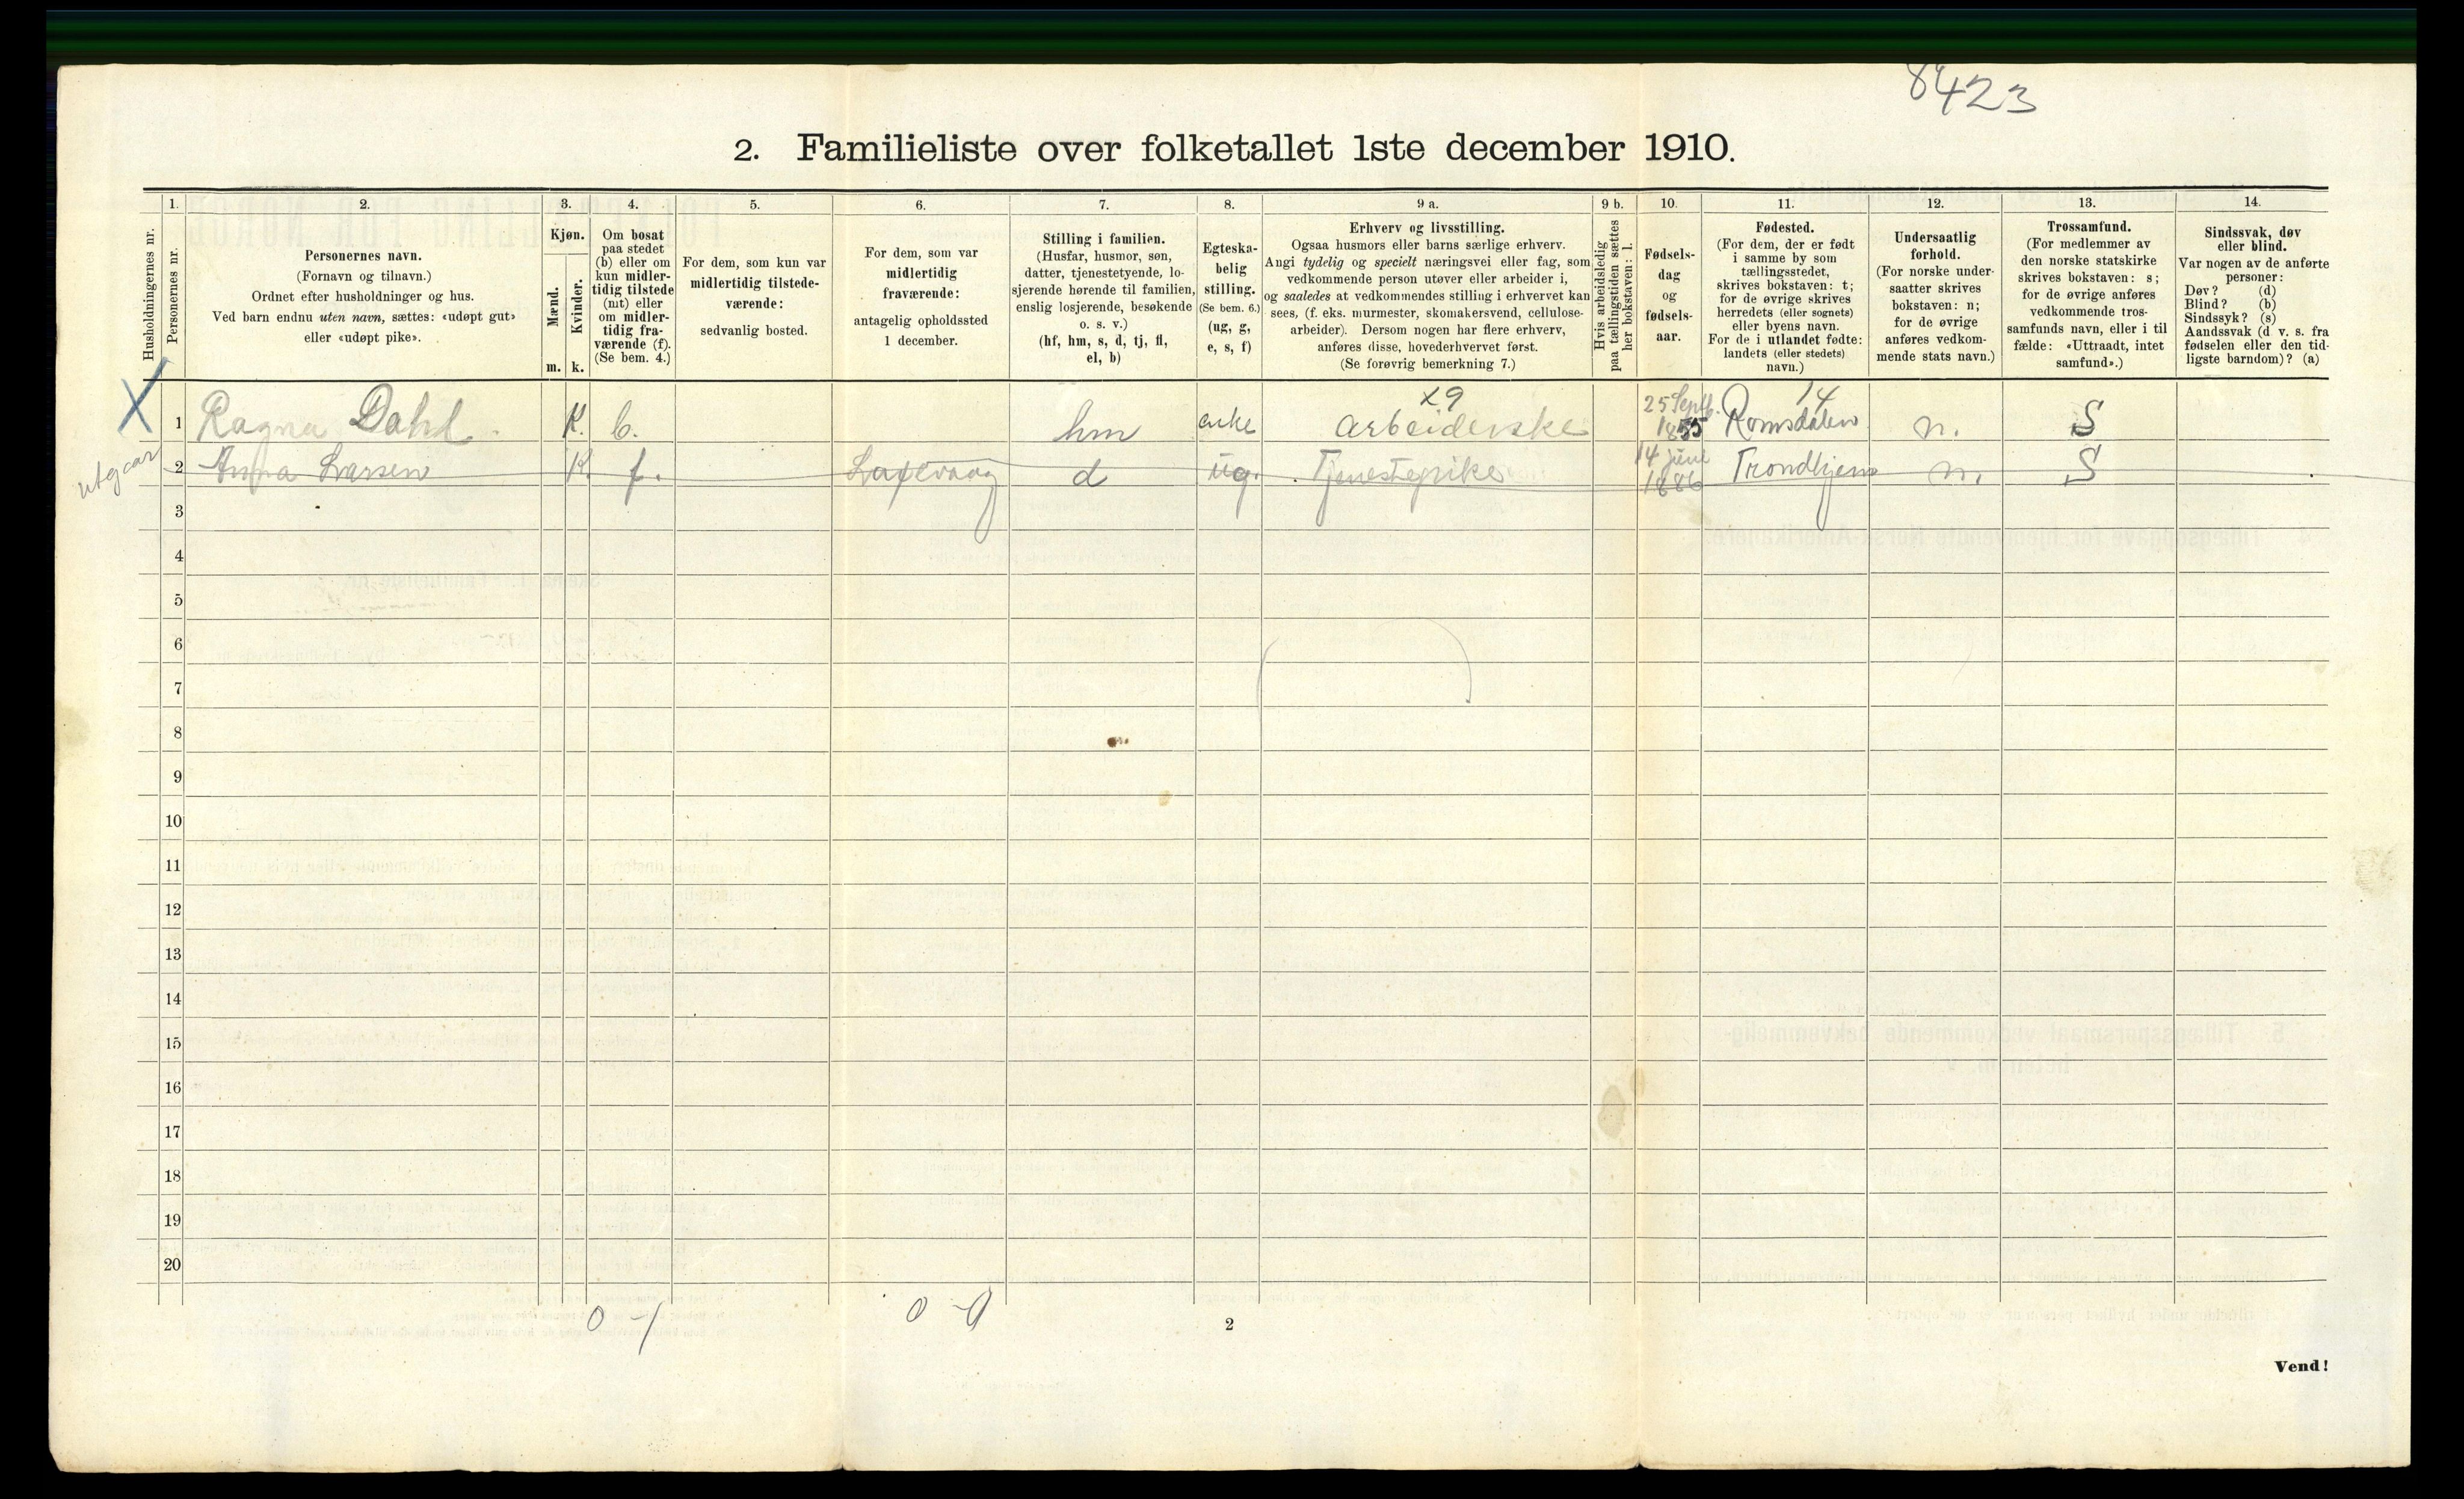 8423
2. Familieliste over folketallet 1ste december 1910.
1. 2. 3. 4. 5. 6. 7. 8. 9 a. 9 b. 10. 11. 12. 13. 14.
Husholdningernes nr.
Personernes nr.
Personernes navn.
(Fornavn og tilnavn.)
Ordnet efter husholdninger og hus.
Ved barn endnu uten navn, sættes: «udøpt gut»
eller «udøpt pike».
Kjøn.
Mænd.
Kvinder.
m. k.
Om bosat
paa stedet
(b) eller om
kun midler-
tidig tilstede
(mt) eller
om midler-
tidig fra-
værende (f).
(Se bem. 4.)
For dem, som kun var
midlertidig tilstede-
værende:
sedvanlig bosted.
For dem, som var
midlertidig
fraværende:
antagelig opholdssted
1 december.
Stilling i familien.
(Husfar, husmor, søn,
datter, tjenestetyende, lo-
sjerende hørende til familien,
enslig losjerende, besøkende
o. s. v.)
(hf, hm, s, d, tj, fl,
el, b)
Egteska-
belig
stilling.
(Se bem. 6.)
(ug, g,
e, s, f)
Erhverv og livsstilling.
Ogsaa husmors eller barns særlige erhverv.
Angi tydelig og specielt næringsvei eller fag, som
vedkommende person utøver eller arbeider i,
og saaledes at vedkommendes stilling i erhvervet kan
sees, (f. eks. murmester, skomakersvend, cellulose-
arbeider). Dersom nogen har flere erhverv,
anføres disse, hovederhvervet først.
(Se forøvrig bemerkning 7.)
Hvis arbeidsledig
paa tællingstiden sættes
her bokstaven: l.
Fødsels-
dag
og
fødsels-
aar.
Fødested.
(For dem, der er født
i samme by som
tællingsstedet,
skrives bokstaven: t;
for de øvrige skrives
herredets (eller sognets)
eller byens navn.
For de i utlandet fødte:
landets (eller stedets)
navn.)
Undersaatlig
forhold.
(For norske under-
saatter skrives
bokstaven: n;
for de øvrige
anføres vedkom-
mende stats navn.)
Trossamfund.
(For medlemmer av
den norske statskirke
skrives bokstaven: s;
for de øvrige anføres
vedkommende tros-
samfunds navn, eller i til
fælde: «Uttraadt, intet
samfund».)
Sindssvak, døv
eller blind.
Var nogen av de anførte
personer:
Døv? (d)
Blind? (b)
Sindssyk? (s)
Aandssvak (d v. s. fra
fødselen eller den tid-
ligste barndom)? (a)
X x9 14
1 Ragna Dahl. K. b. hm enke arbeiderske 25 Septb. 1855 Romsdalen n. S
utgaar 2 Anna Larsen K. f. Laxevaag d ug. Tjenestepike 14 juni 1886 Trondhjem n. S
3
4
5
6
7
8
9
10
11
12
13
14
15
16
17
18
19
20
0 - 1 0 - 0
2
Vend!